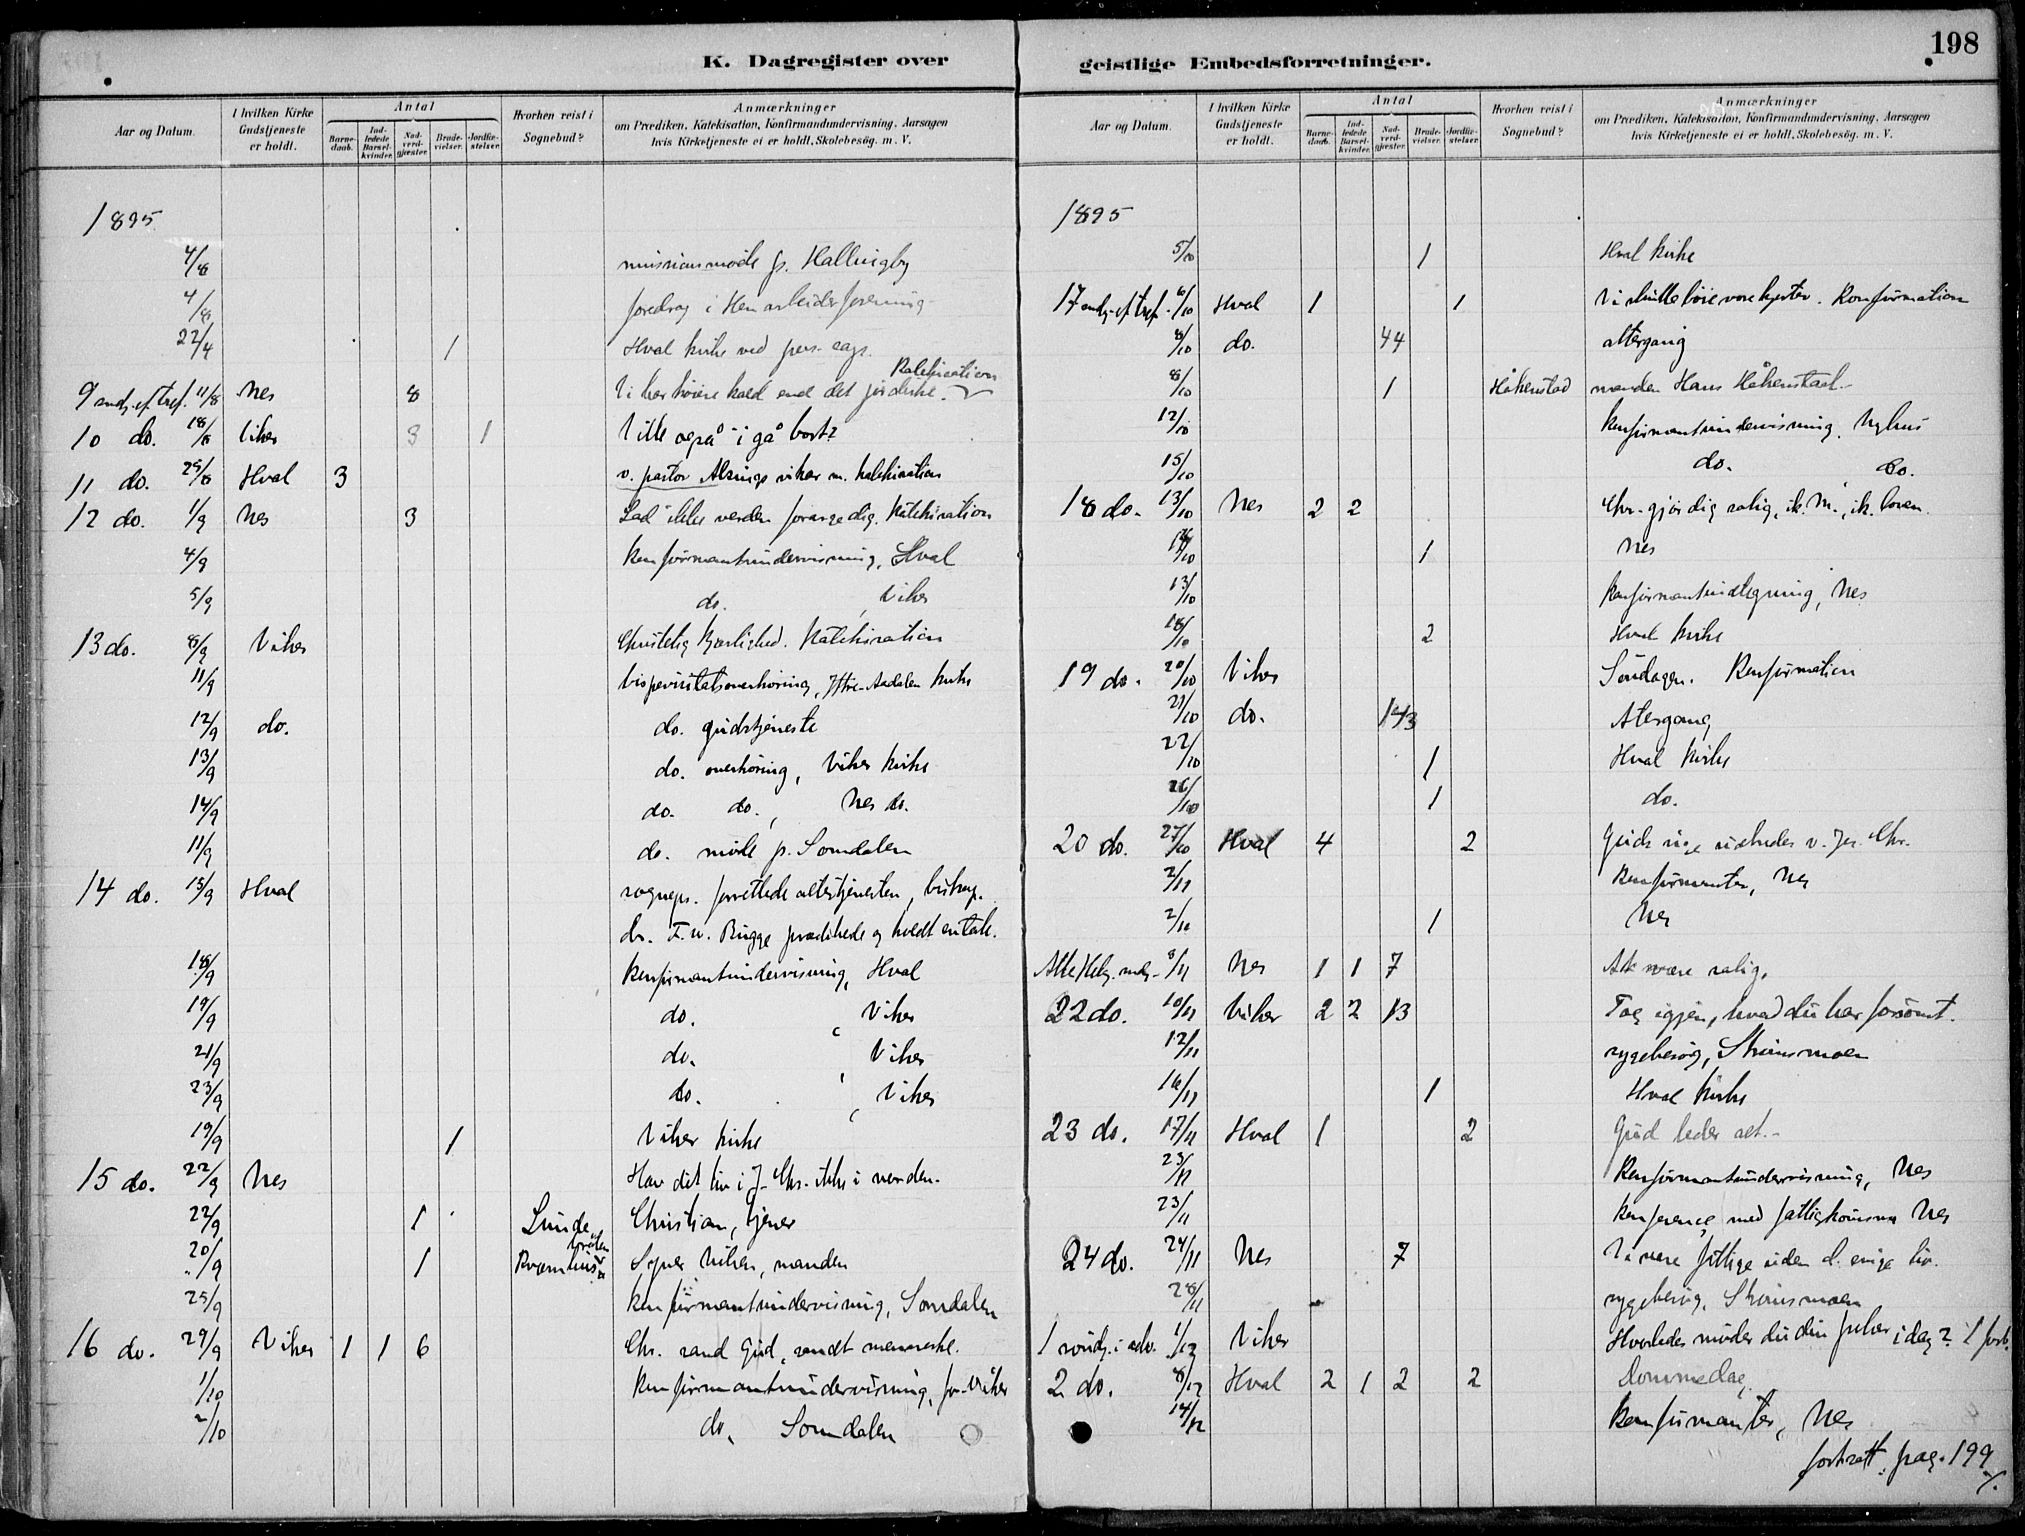 198
K. Dagregister over geistlige Embedsforretninger.
Aar og Datum.
I hvilken Kirke Gudstjeneste er holdt.
Antal
Barne-daab.
Ind-ledede Barsel-kvinder.
Nad-verd-gjæster.
Brude-vielser.
Jordfæ-stelser.
Hvorhen reist i Sognebud?
Anmærkninger
om Prædiken, Katekisation, Konfirmandundervisning, Aarsagen
hvis Kirketjeneste ei er holdt, Skolebesøg. m. V.
1895
4/8 missionsmøde p. Hallingby
4/8 foredrag i Hen arbeiderforening
22/4 1 Hval kirke ved pers. cap.
Katekisation
9 ef. tref. 11/8 Nes 8 Vi har høiere kald end det jordiske.
10 do. 18/8 Viker 3 1 Ville også i gå bort?
11 do. 25/8 Hval 3 v. pastor vikar m. katekisation
12 do. 1/9 Nes 3 Lad ikke verden forarge dig. Katekisation
4/9 Konfirmantundervisning, Hval
5/9 do. , Viker
13 do. 8/9 Viker Christelig kjærlighed. Katekisation
11/9 bispevisitatsoverhøring, Ytre-Aadalen kirke
12/9 do. do. gudstjeneste
13/9 do. overhøring, Viker kirke
14/9 do. do. , Nes do.
11/9 do. møde p. Somdalen
14 do. 15/9 Hval sogneps. forrettede altertjenesten, biskop
dr. F. W. Bugge prædikede og holdt en tale.
18/9 Konfirmantundervisning, Hval
19/9 do. , Viker
21/9 do. , Viker
23/9 do. , Viker
19/9 1 Viker kirke
15 do. 22/9 Nes Hav dit liv i J. Chr. ikke i verden.
22/9 1 Lunde Christian, tjener
20/9 1 manden
25/9 Konfirmantundervisning, Somdalen
16 do. 29/9 Viker 1 1 6 Chr. sand Gud, sandt menneske.
1/10 Konfirmantundervisning, for Viker
2/10 do, Somdalen
Aar og Datum.
I hvilken Kirke Gudstjeneste er holdt.
Antal
Barne-daab.
Ind-ledede Barsel-kvinder.
Nad-verd-gjæster.
Brude-vielser.
Jordfæ-stelser.
Hvorhen reist i Sognebud?
Anmærkninger
om Prædiken, Katekisation, Konfirmandundervisning, Aarsagen
hvis Kirketjeneste ei er holdt, Skolebesøg. m. V.
1895
5/10 1 Hval kirke
17 ef. tref. 6/10 Hval 1 1 Vi skulle bøie vore hjerter. Konfirmation
8/10 do. 44 altergang
8/10 1 Håkenstad manden Hans Håkenstad
12/10 Konfirmantundervisning, Nyhus
15/10 do. , do.
18 do. 13/10 Nes 2 2 Chr. gjør dig salig, ik. M., ik. loven.
10 1 Nes
13/10 Konfirmantundervisning, Nes
18/10 2 Hval kirke
19 do. 20/10 Viker Søndagen. Konfirmation
21/10 do. 143 Altergang
22/10 1 Hval kirke
26/10 1 do.
20 do. 27/10 Hval 4 2 Guds rige v. Jes. Chr.
2/11 Konfirmanter, Nes
2/11 1 Nes
Allehelg. 3/11 Nes 1 1 7 At være salig.
22 do. 10/11 Viker 2 2 13 Tag igjen, hvad du har forsømt.
12/11 sygebesøg, Skoiensmoen
16/11 1 Hval kirke
23 do. 17/11 Hval 1 2 Gud leder alt.
23/11 Konfirmantundervisning, Nes
23/11 Konference med Nes
24 do. 24/11 Nes 7 Vi ere fattige uden d. evige liv.
28/11 sygebesøg,
1 sønd. i adv. 1/12 Viker Hvorledes møder du din frelser i dag?
2 do. 8/12 Hval 2 1 2 2 Dommedag
14/12 Konfirmanter, Nes
fortsatt pag. 199